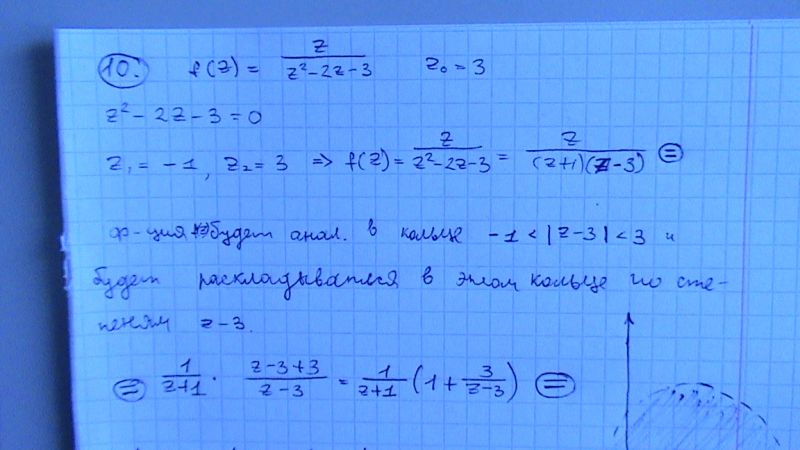 10. f(z) = z/(z²-2z-3) z₀ = 3
z² - 2z - 3 = 0
z₁ = -1, z₂ = 3 ⇒ f(z) = z/(z²-2z-3) = z/((z+1)(z-3)) =
ф-ция будет анал. в кольце -1 < |z-3| < 3 и
будет раскладываться в этом кольце по сте-
пеням z-3.
= 1/(z+1) · (z-3+3)/(z-3) = 1/(z+1) (1 + 3/(z-3)) =